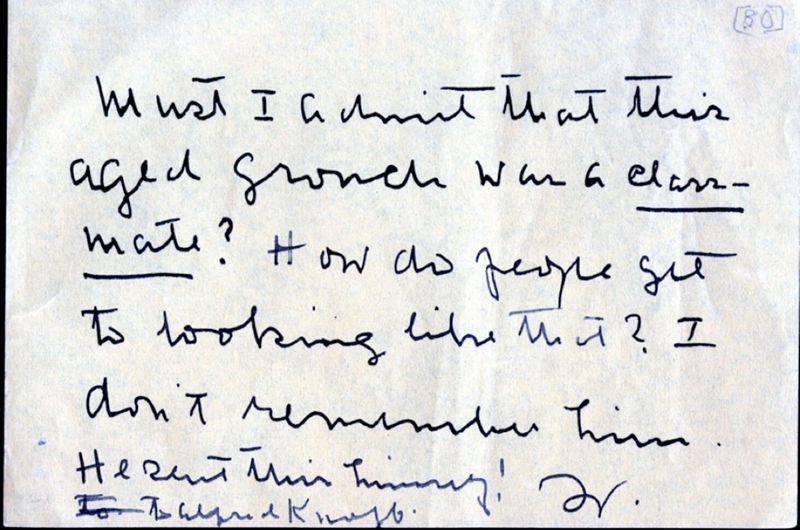 [30]
Must I admit that this
aged grouch was a class-
mate? How do people get
to looking like that? I
don't remember him.
He sent this himself!
To To Alfred Knopf.